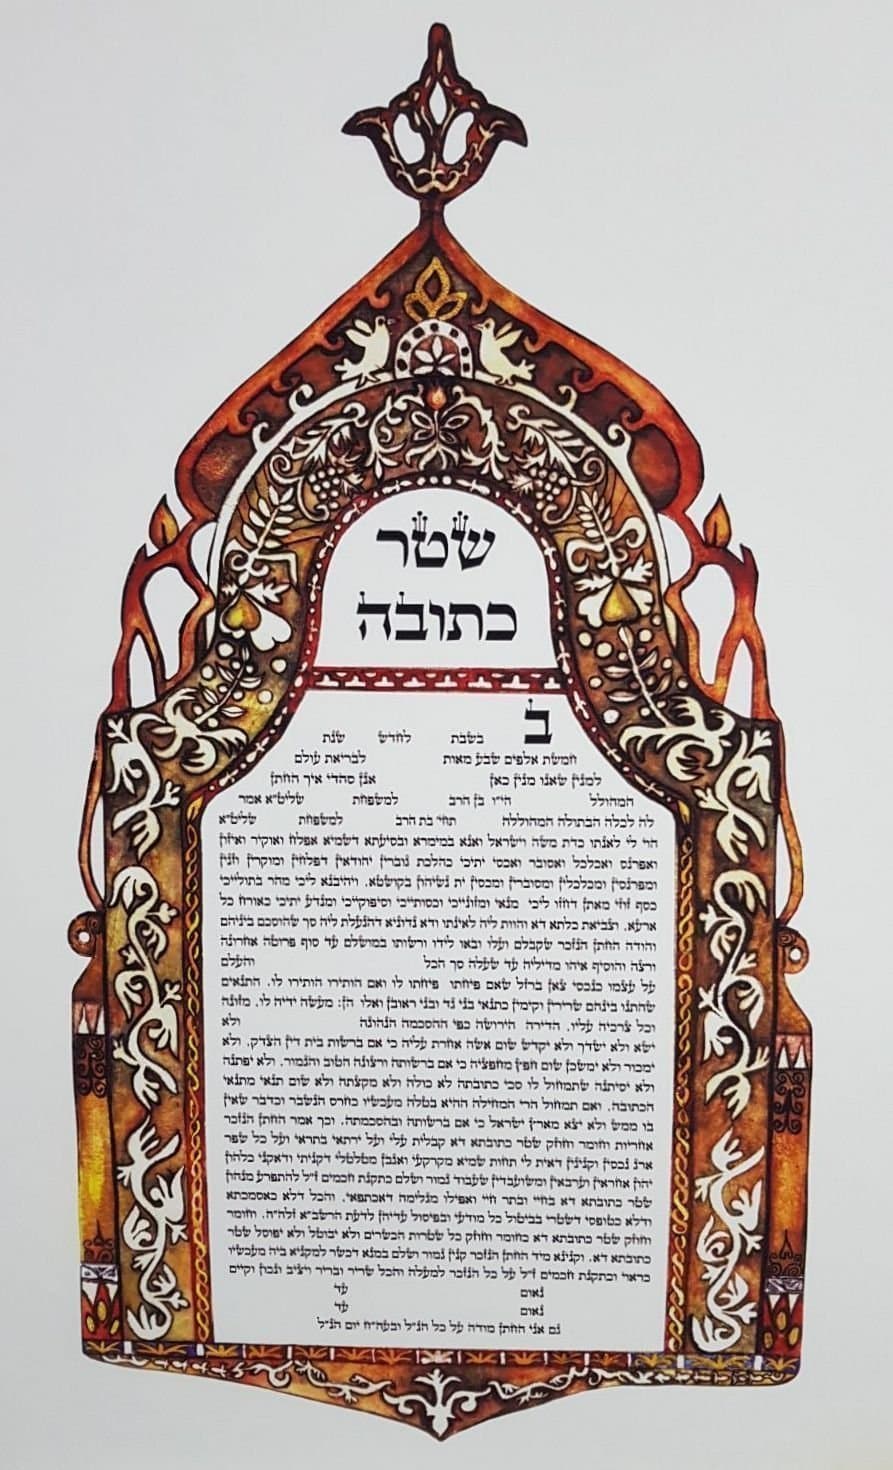 שטר
כתובה
ב בשבת לחדש שנת
חמשת אלפים שבע מאות לבריאת עולם
למנין שאנו מנין כאן אנן סהדי איך החתן
המהולל הי״ו בן הרב למשפחת שליט״א אמר
לה לכלה הבתולה המהוללה תחי׳ בת הרב למשפחת שליט״א
הוי לי לאנתו כדת משה וישראל ואנא במימרא ובסיעתא דשמיא אפלח ואוקיר ואיזון
ואפרנס ואכלכל ואסובר ואכסי יתיכי כהלכת גוברין יהודאין דפלחין ומוקרין וזנין
ומפרנסין ומכלכלין ומסוברין ומכסין ית נשיהון בקושטא. ויהיבנא ליכי מהר בתוליכי
כסף זוזי מאתן דחזו ליכי מנאי ומזונייכי וכסותייכי וסיפוקייכי ומעל יתיכי כאורח כל
ארעא. וצביאת כלתא דא והוות ליה לאינתו ודא נדוניא דהנעלת ליה סך שהוסכם ביניהם
והודה החתן הנזכר שקבלם ועלו ובאו לידו ורשותו במושלם עד סוף פרוטה אחרונה
ורצה והוסיף איהו מדיליה עד שעלה סך הכל והעלם
על עצמו כנכסי צאן ברזל שאם פיחתו פיחתו לו ואם הותירו הותירו לו. התנאים
שהתנו ביניהם שרירין וקימין כתנאי בני גד ובני ראובן ואלו הן: מעשה ידיה לו. מזונה
וכל צרכיה עליו. הדירה הירושה כפי ההסכמה הנהוגה ולא
ישא ולא ישדך ולא יקדש שום אשה אחרת עליה כי אם ברשות בית דין הצדק. ולא
ימכור ולא ימשכן שום חפץ מחפציה כי אם ברשותה ורצונה הטוב והגמור. ולא יפתנה
ולא יסיתנה שתמחול לו סכי כתובתה לא כולה ולא מקצתה ולא שום תנאי מתנאי
הכתובה. ואם תמחול הרי המחילה ההיא בטלה מעכשיו כחרס הנשבר וכדבר שאין
בו ממש ולא יצא מארץ ישראל כי אם ברשותה ובהסכמתה. וכך אמר החתן הנזכר
אחריות וחומר וחוזק שטר כתובתא דא קבלית עלי ועל ירתאי בתראי ועל כל שפר
ארג נכסין וקנינין דאית לי תחות שמיא מקרקעי ואגבן מטלטלי דקניתי ודאקני כלהון
יהון אחראין וערבאין ומשועבדין שעבוד גמור ושלם כתקנת חכמים ז״ל להתפרע מנהון
שטר כתובתא דא בחיי ובתר חיי ואפילו מגלימה דאכתפאי. והכל דלא כאסמכתא
ודלא כטופסי דשטרי בביטול כל מודעי ובפיסול עדיהן לדעת הרשב״א זלה״ה. וחומר
וחוזק שטר כתובתא דא כחומר וחוזק כל שטרות הכשרים ולא יבוטל ולא יפוסל שטר
כתובתא דא. וקנינא מיד החתן הנזכר קנין גמור ושלם במנא דכשר למקניא ביה מעכשיו
כראוי וכתקנת חכמים ז״ל על כל הנזכר למעלה והכל שריר ובריר ויציב ונכון וקיים
נאום עד
נאום עד
גם אני החתן מודה על כל הנ״ל ובעה״ח יום הנ״ל